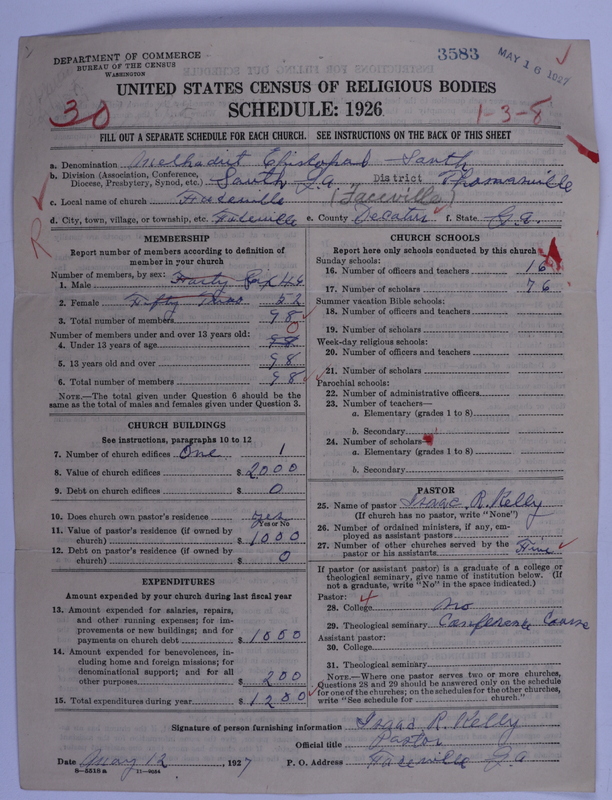 DEPARTMENT OF COMMERCE
BUREAU OF THE CENSUS
WASHINGTON
3583
MAY 16 1927
UNITED STATES CENSUS OF RELIGIOUS BODIES
30
SCHEDULE: 1926
1-3-8
FILL OUT A SEPARATE SCHEDULE FOR EACH CHURCH. SEE INSTRUCTIONS ON THE BACK OF THIS SHEET
a. Denomination Methodist Episcopal South
b. Division (Association, Conference, Diocese, Presbytery, Synod, etc.) South Ga " District Thomasville
c. Local name of church Faceville (Faceville)
d. City, town, village, or township, etc. Faceville e. County Decatur f. State Ga.
R
MEMBERSHIP
Report number of members according to definition of
member in your church
Number of members, by sex:
1. Male Forty Six 46
2. Female Fifty Two 52
3. Total number of members 98
Number of members under and over 13 years old:
4. Under 13 years of age 0
5. 13 years old and over 98
6. Total number of members 98
NOTE.—The total given under Question 6 should be
same as the total of males and females given under Question 3.
CHURCH BUILDINGS
See instructions, paragraphs 10 to 12
7. Number of church edifices One 1
8. Value of church edifices $ 2000
9. Debt on church edifices $ 0
10. Does church own pastor's residence yes
Yes or No
11. Value of pastor's residence (if owned by
church) $ 1000
12. Debt on pastor's residence (if owned by
church) $ 0
EXPENDITURES
Amount expended by your church during last fiscal year
13. Amount expended for salaries, repairs,
and other running expenses; for im-
provements or new buildings; and for
payments on church debt $ 1000
14. Amount expended for benevolences, in-
cluding home and foreign missions; for
denominational support; and for all
other purposes $ 200
15. Total expenditures during year $ 1200
CHURCH SCHOOLS
Report here only schools conducted by this church
Sunday schools:
16. Number of officers and teachers 16
17. Number of scholars 76
Summer vacation Bible schools:
18. Number of officers and teachers
19. Number of scholars
Week-day religious schools:
20. Number of officers and teachers
21. Number of scholars
Parochial schools:
22. Number of administrative officers
23. Number of teachers—
a. Elementary (grades 1 to 8)
b. Secondary
24. Number of scholars—
a. Elementary (grades 1 to 8)
b. Secondary
PASTOR
25. Name of pastor Isaac R. Kelly
(If church has no pastor, write "None")
26. Number of ordained ministers, if any, em-
ployed as assistant pastors
27. Number of other churches served by the
pastor or his assistants Five
If pastor (or assistant pastor) is a graduate of a college or
theological seminary, give name of institution below. (If
not a graduate, write "No" in the space indicated.)
Pastor: 4
28. College no
29. Theological seminary Conference Course
Assistant pastor:
30. College
31. Theological seminary
NOTE.—Where one pastor serves two or more churches,
Questions 28 and 29 should be answered only on the schedule
for one of the churches; on the schedules for the other churches,
write "See schedule for church."
Signature of person furnishing information Isaac R. Kelly
Official title Pastor
Date May 12, 1927 P. O. Address Faceville Ga
8—5518 a 11—9024